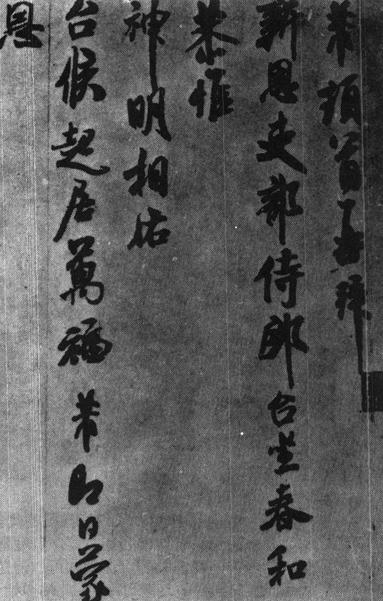 芾頓首再拜
新恩吏部侍郎台坐春和
恭惟
神明相佑
台候起居萬福 芾即日蒙
恩